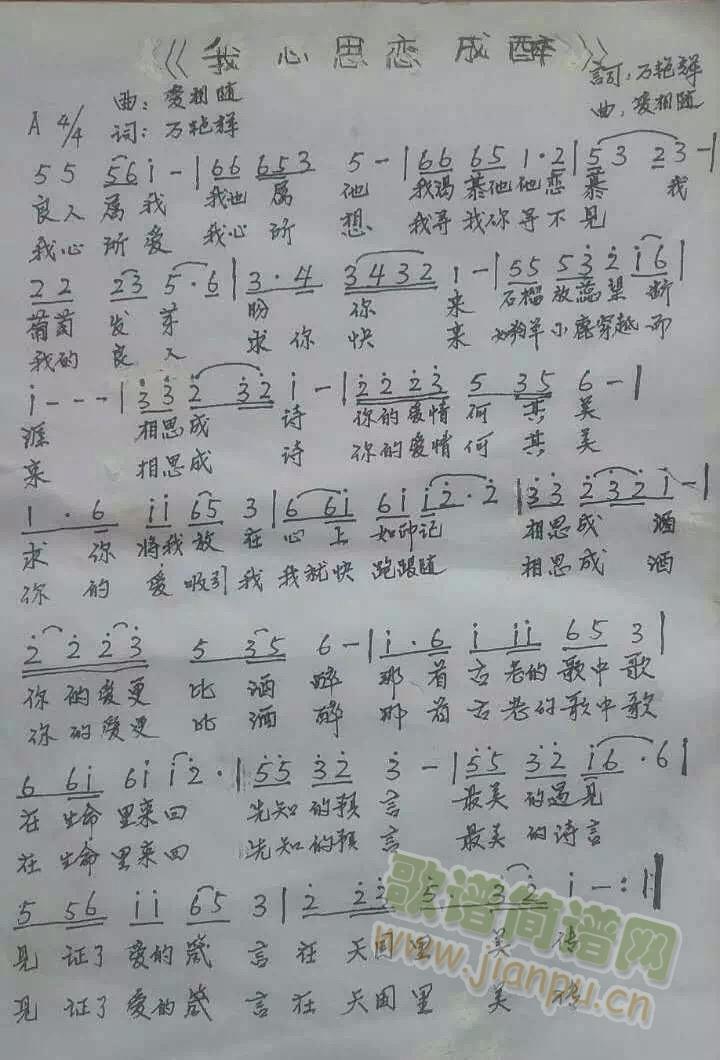 《我心思恋成醉》
詞：万艳辉
曲：爱相随
A 4/4
曲：爱相随
词：万艳辉
5 5 5 6 i - | 6 6 6 5 3 5 - | 6 6 6 5 1 · 2 | 5 3 2 3 - |
良人属我 我也属 他 我渴慕他他恋慕 我
我心所爱 我心所 想 我寻我你寻不见
2 2 2 3 5 · 6 | 3 · 4 3 4 3 2 1 - | 5 5 5 3 2 i 6 |
葡萄发芽 盼 你 来 石榴放蕊
我的良人 求你快来 如羚羊小鹿穿越而
i - - - | 3 3 2 3 2 i - | 2 2 2 3 5 3 5 6 - |
涯 相思成 诗 你的爱情何其美
来 相思成 诗 你的爱情何其美
1 · 6 i i 6 5 3 | 6 6 i 6 i i 2 · 2 | 3 3 2 3 2 i - |
求你将我放在心上如印记 相思成 酒
你的爱吸引我我就快跑跟随 相思成 酒
2 2 2 3 5 3 5 6 - | i · 6 i i i 6 5 3 |
你的爱更比酒醉 那着古老的歌中歌
你的爱更比酒醉 那着古老的歌中歌
6 6 i 6 i i 2 · | 5 5 3 2 3 - | 5 5 3 2 i 6 · 6 |
在生命里来回 先知的预言 最美的遇见
在生命里来回 先知的预言 最美的诗言
5 5 6 i i 6 5 3 | 2 2 2 5 · 3 2 i - :||
见证了爱的箴言在天国里 美
见证了爱的箴言在天国里 美
歌谱简谱网
www.jianpu.cn